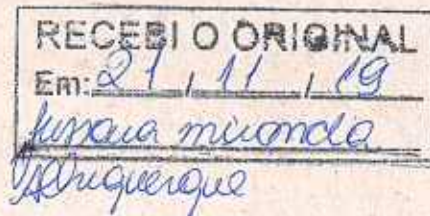 RECEBI O ORIGINAL
Em: 21 / 11 / 19
Jussara miranda
Albuquerque